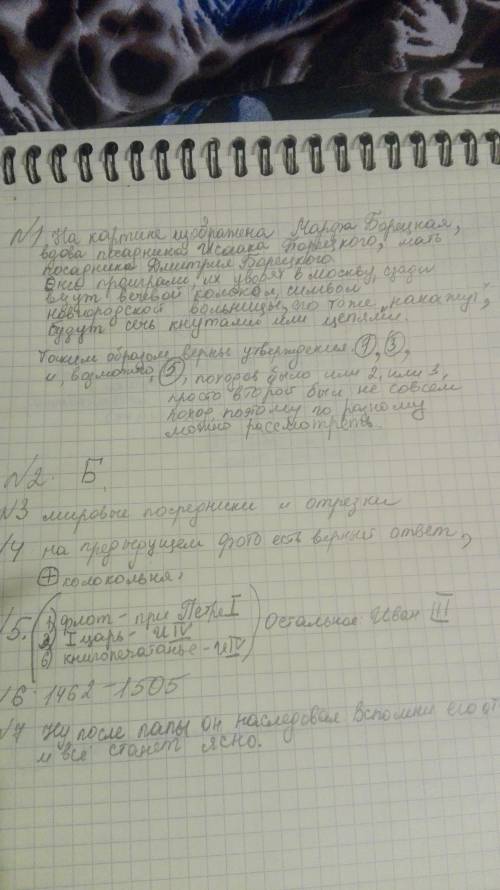 №1 На картине изображена Марфа Борецкая,
вдова посадника Исаака Борецкого, мать
посадника Дмитрия Борецкого.
Они проиграли, их увозят в Москву, сзади
везут вечевой колокол, символ
новгородской вольницы, его тоже "накажут",
будут сечь кнутами или цепями.
Таким образом, верны утверждения ①, ③,
и, возможно, ⑤, походов было или 2, или 3,
просто второй был не совсем
поход, поэтому по разному
можно рассмотреть.
№2. Б.
№3 мировые посредники и отрезки
№4 на предыдущем фото есть верный ответ,
⊕ колокольня.
№5. 1) флот - при Петре I
3) I царь - И IV
6) книгопечатанье - И IV
Остальное: Иван III
№6. 1462-1505
№7 Ну после папы он наследовал Вспомни его от
и всё станет ясно.